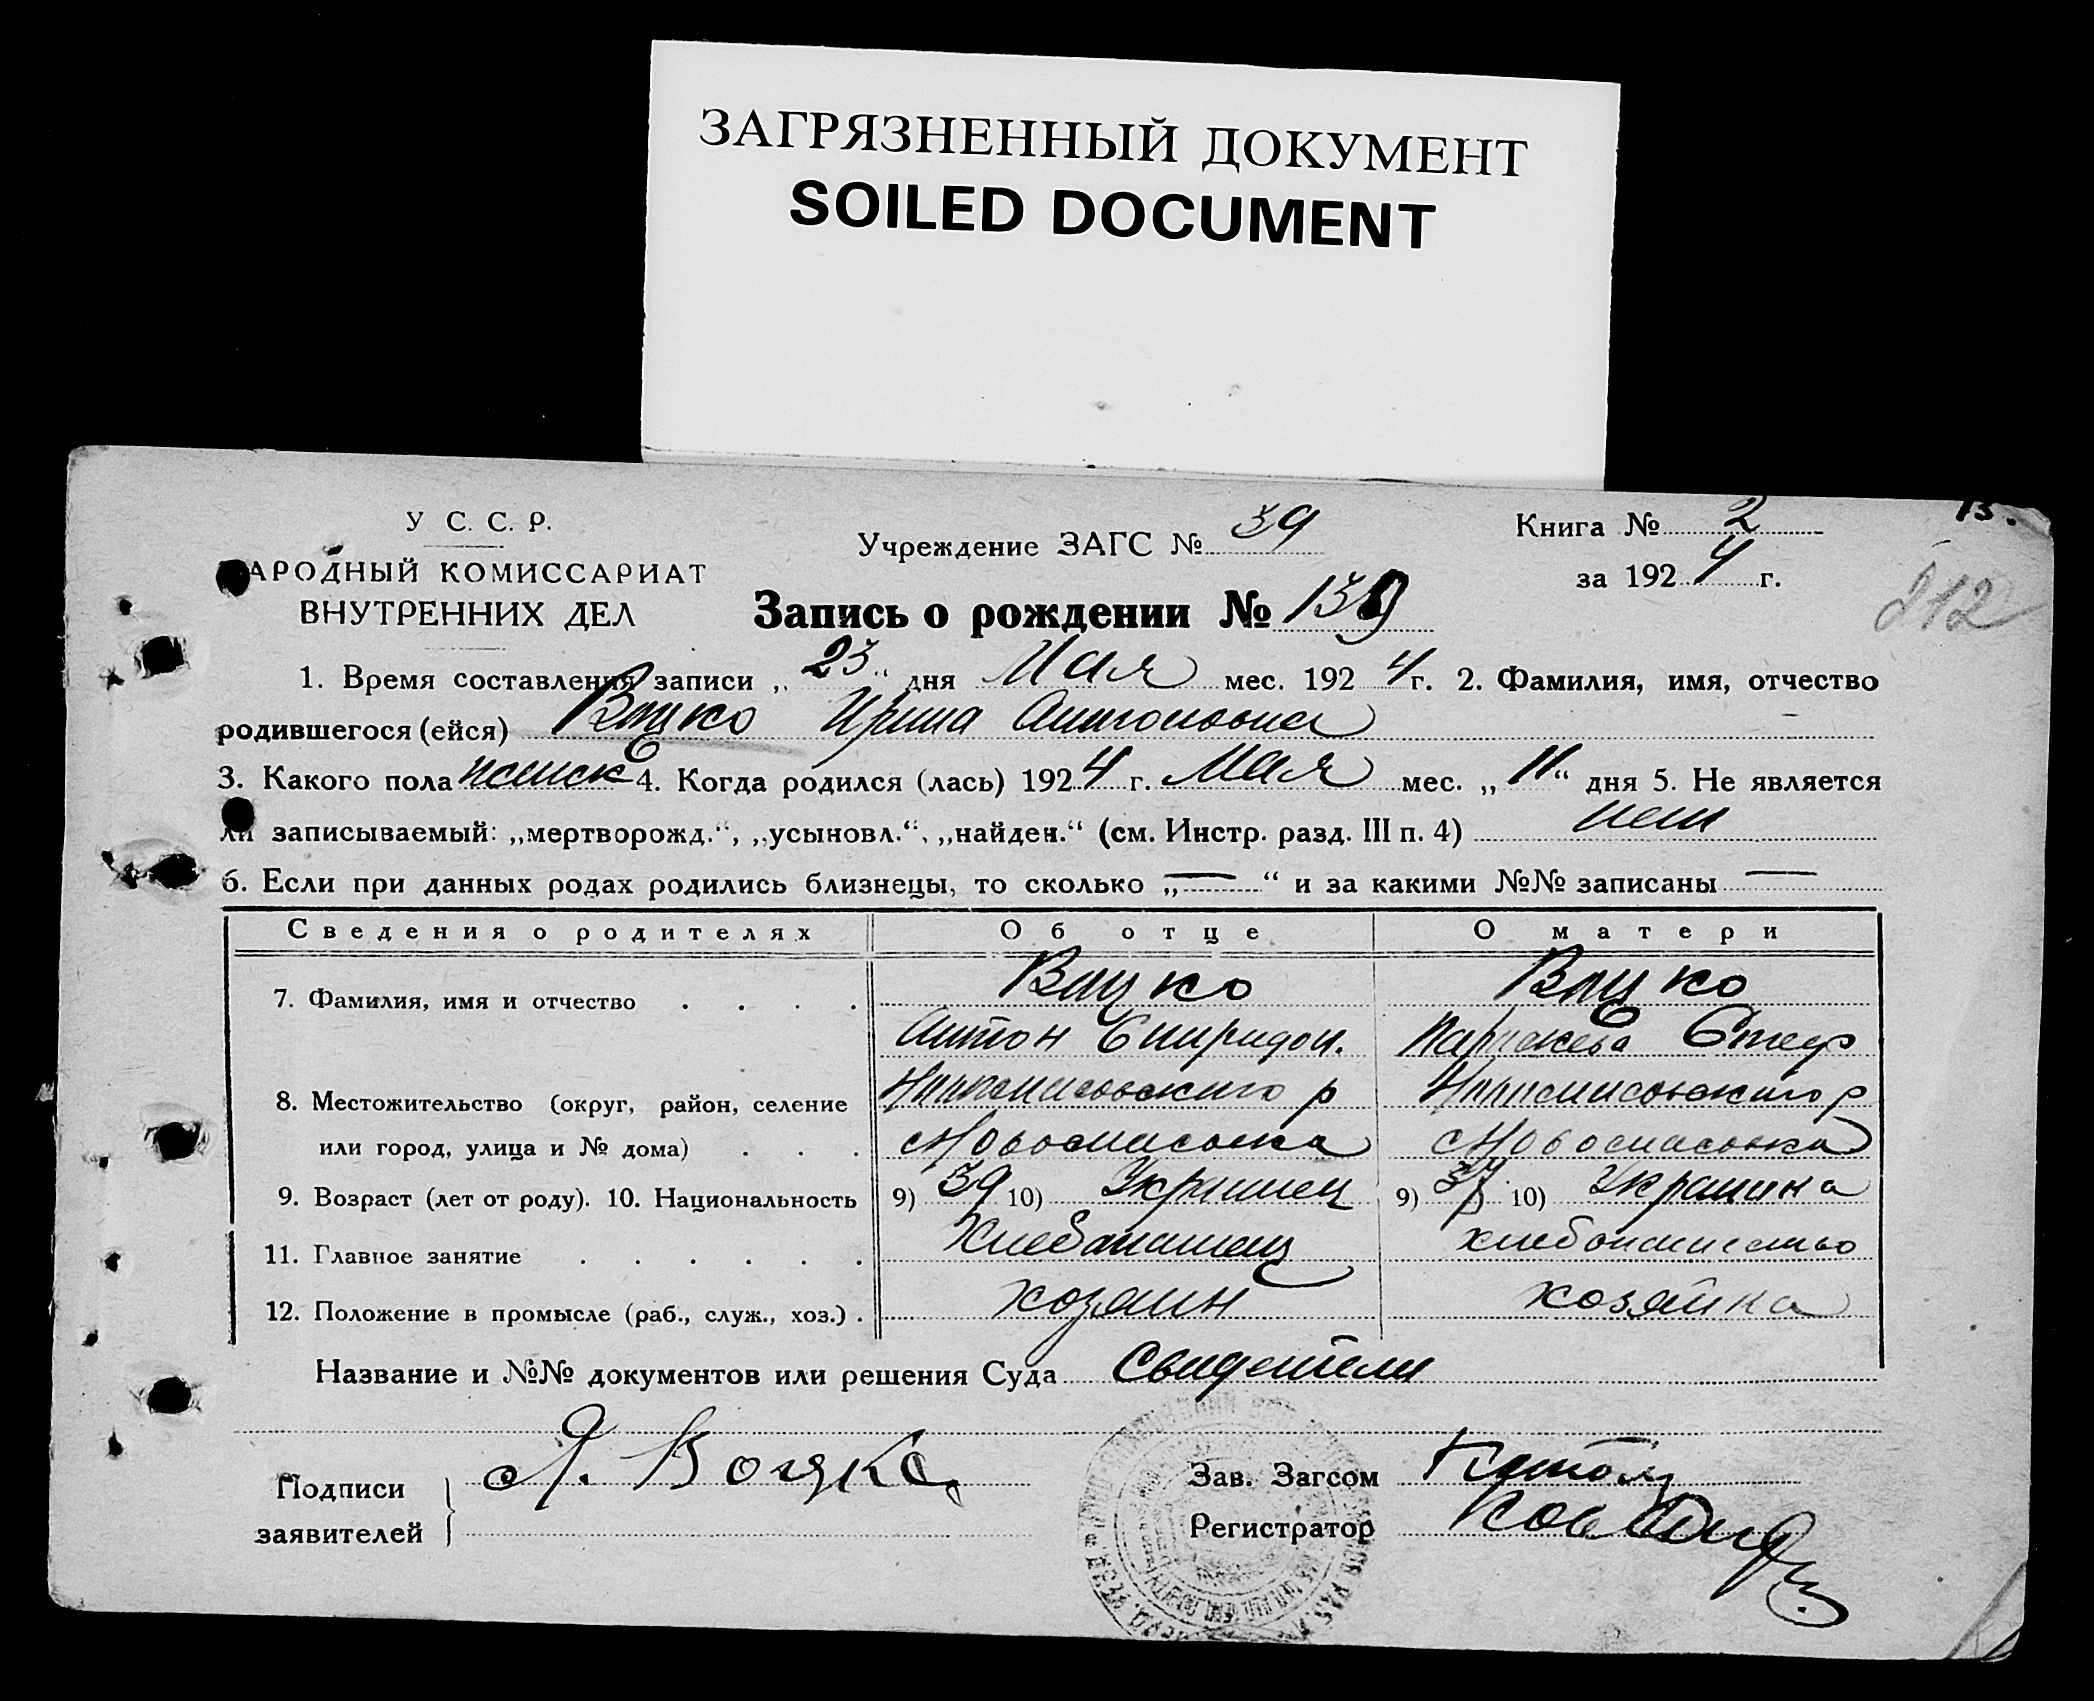 ЗАГРЯЗНЕННЫЙ ДОКУМЕНТ
SOILED DOCUMENT
У С. С. Р.
НАРОДНЫЙ КОМИССАРИАТ
ВНУТРЕННИХ ДЕЛ
Учреждение ЗАГС № 39
Книга № 2
13.
за 1924 г.
812
Запись о рождении № 139
1. Время составления записи „23“ дня Мая мес. 1924 г. 2. Фамилия, имя, отчество
родившегося (ейся) Вацко Ирина Антоновна
3. Какого пола женск 4. Когда родился (лась) 1924 г. Мая мес. „11“ дня 5. Не является
ли записываемый: „мертворожд.“, „усыновл.“, „найден.“ (см. Инстр. разд. III п. 4) нет
6. Если при данных родах родились близнецы, то сколько „—“ и за какими №№ записаны —
Сведения о родителях Об отце О матери
7. Фамилия, имя и отчество . . . . Вацко Вацко
Антон Спиридон. Параскева Стеф
8. Местожительство (округ, район, селение р р
или город, улица и № дома) . . . Новоспасовка Новоспасовка
9. Возраст (лет от роду). 10. Национальность 9) 39 10) Украинец 9) 37 10) Украинка
11. Главное занятие . . . . . . Хлебопашец хлебопашество
12. Положение в промысле (раб., служ., хоз.) . хозяин хозяйка
Название и №№ документов или решения Суда Свидетели
Подписи
заявителей
А. Вацко
Зав. Загсом
Регистратор